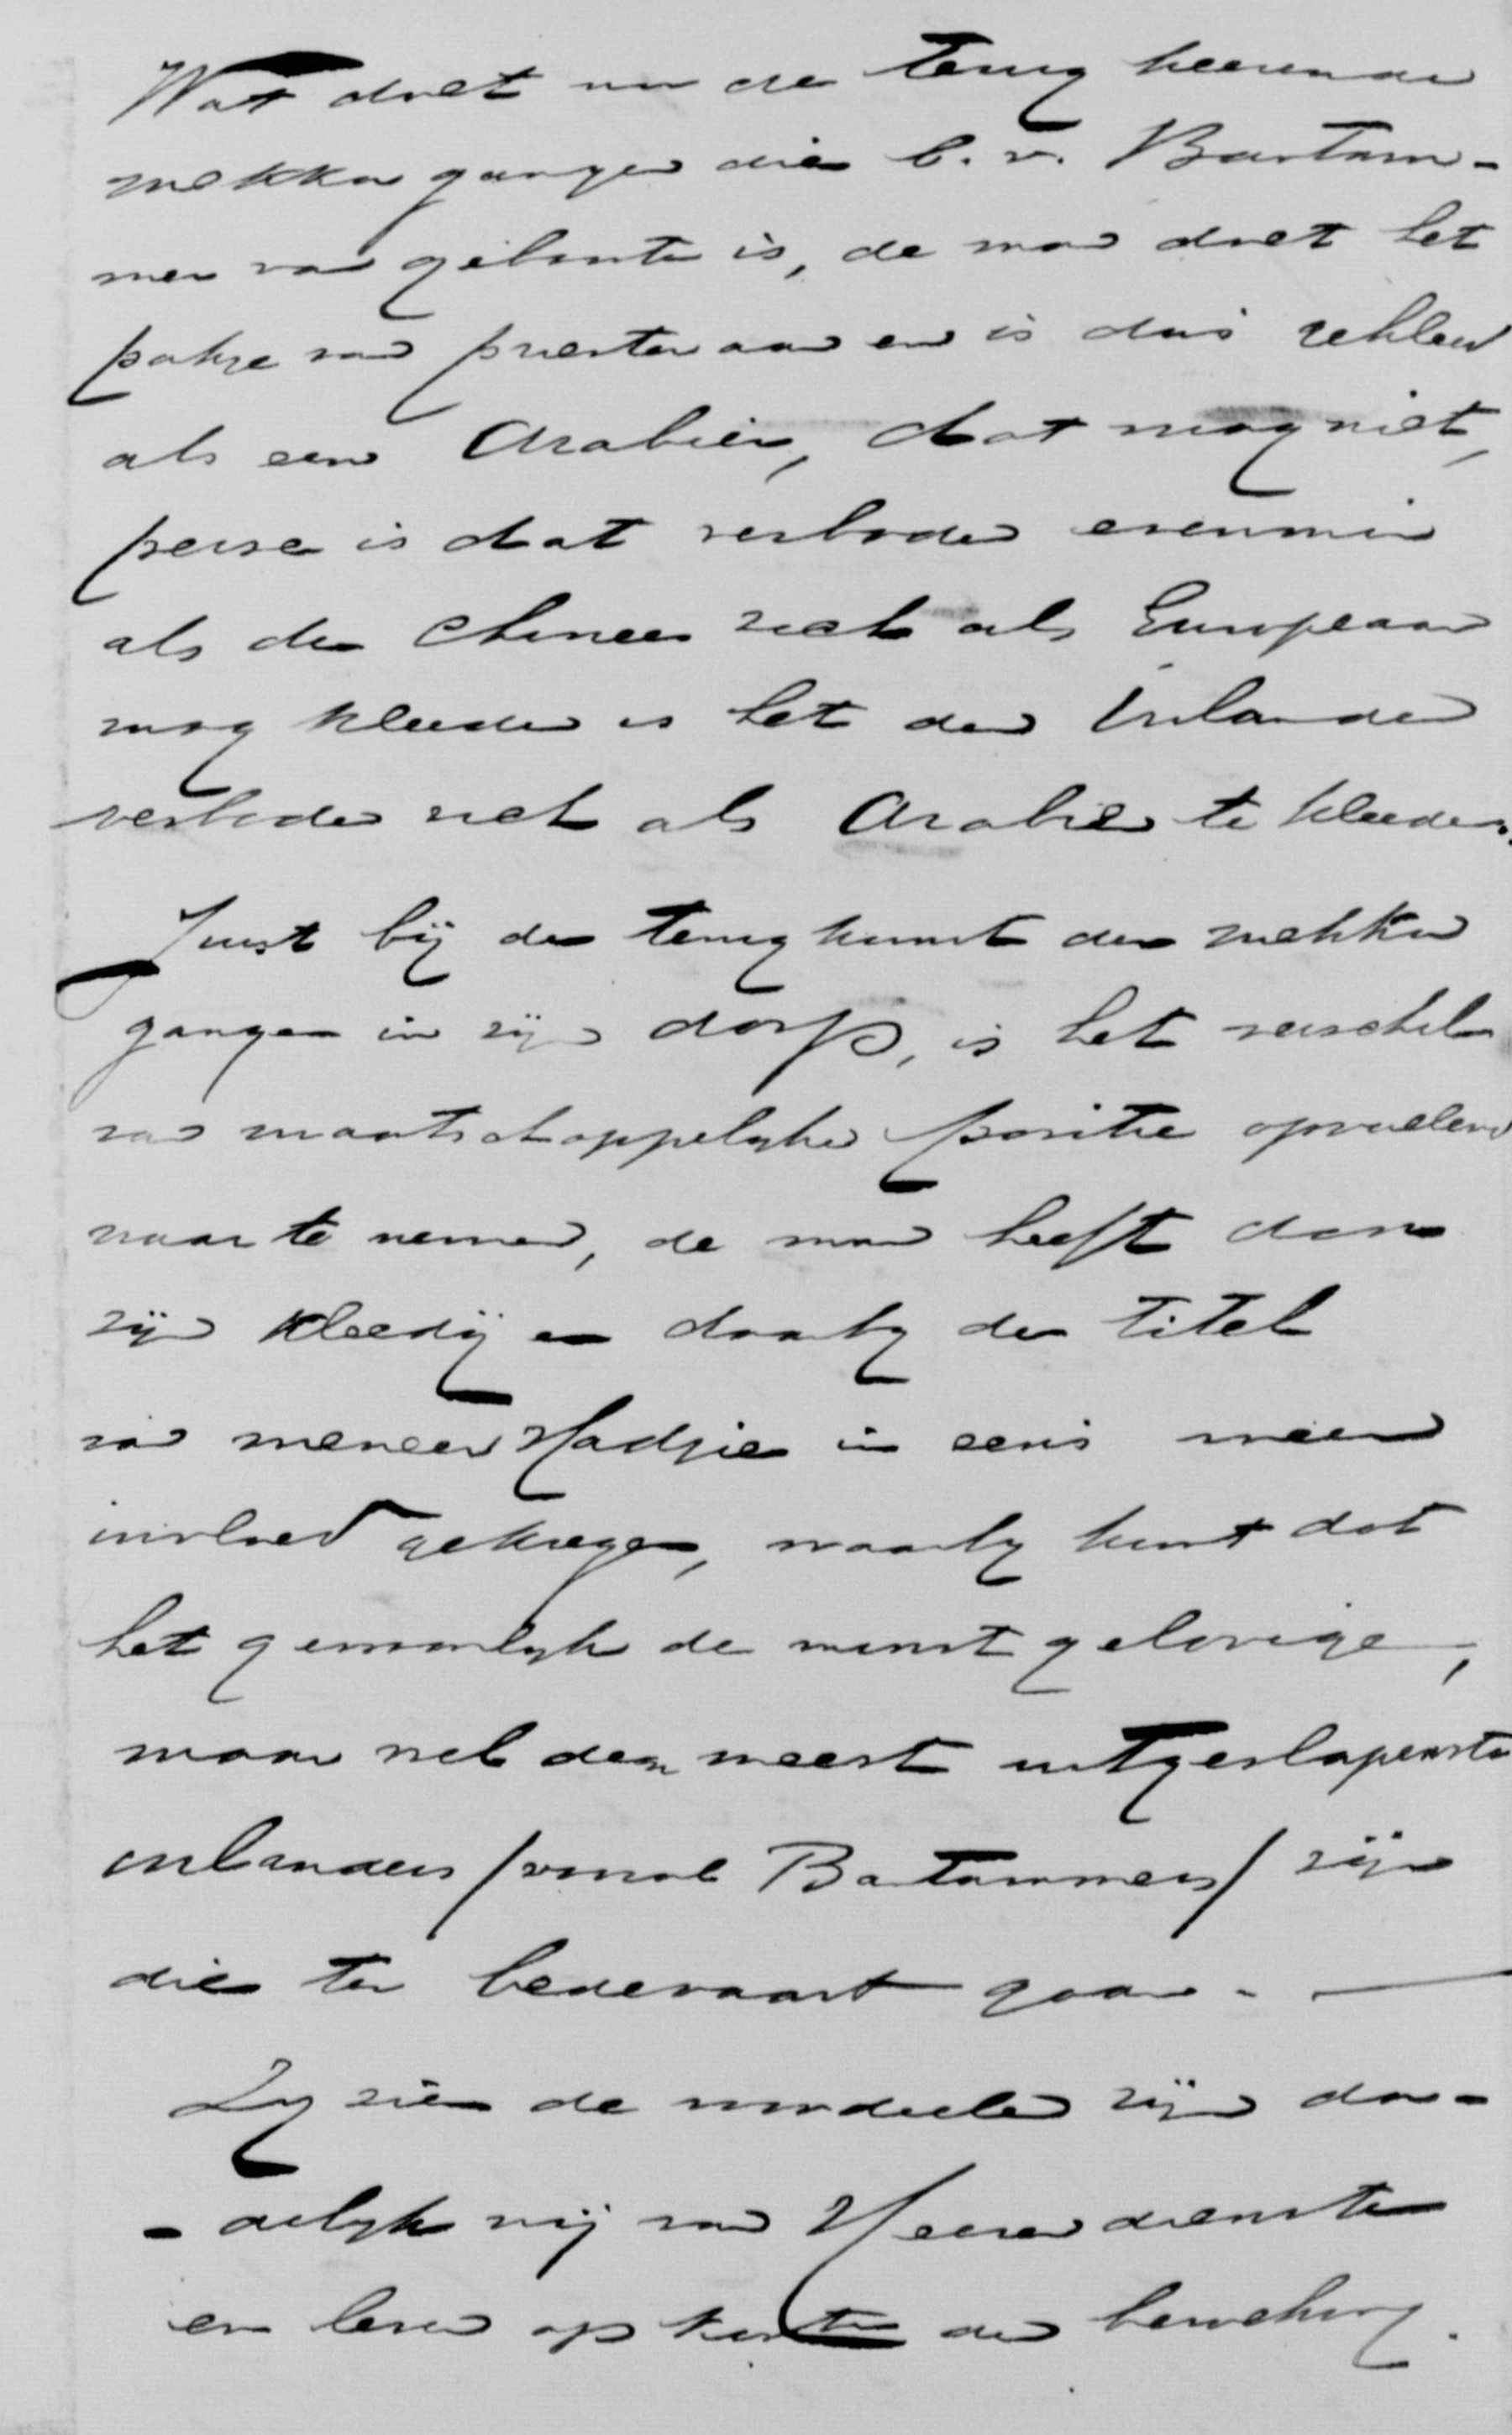 Wat doet nu de terug keerende
mekka ganger die b.v. Bantam-
mer van geboorte is, de man doet het
pakje van priester aan en is dus gekleed
als een Arabier, dat mag niet,
perse is dat verboden evenmin
als de Chinees zich als Europeaan
mag kleeden is het den Inlander
verboden zich als Arabier te kleeden.
Juist bij de terugkomst der mekka
gangers in zijn dorp, is het verschil
van maatschappelijke positie opvallend
waar te nemen, de man heeft dan
zijn kleedij en daarbij de titel
van meneer Hadjie in eens meer
invloed gekregen, waarbij komt dat
het gewoonlijk de minst gelovige,
maar wel den meest uitgeslapenste
inlanders /vooral Bantammers/ zijn
die ter bedevaart gaan. —
Zij zien de voordeelen zijn da-
- delijk vrij van Heerendiensten
en leven op kosten der bevolking.